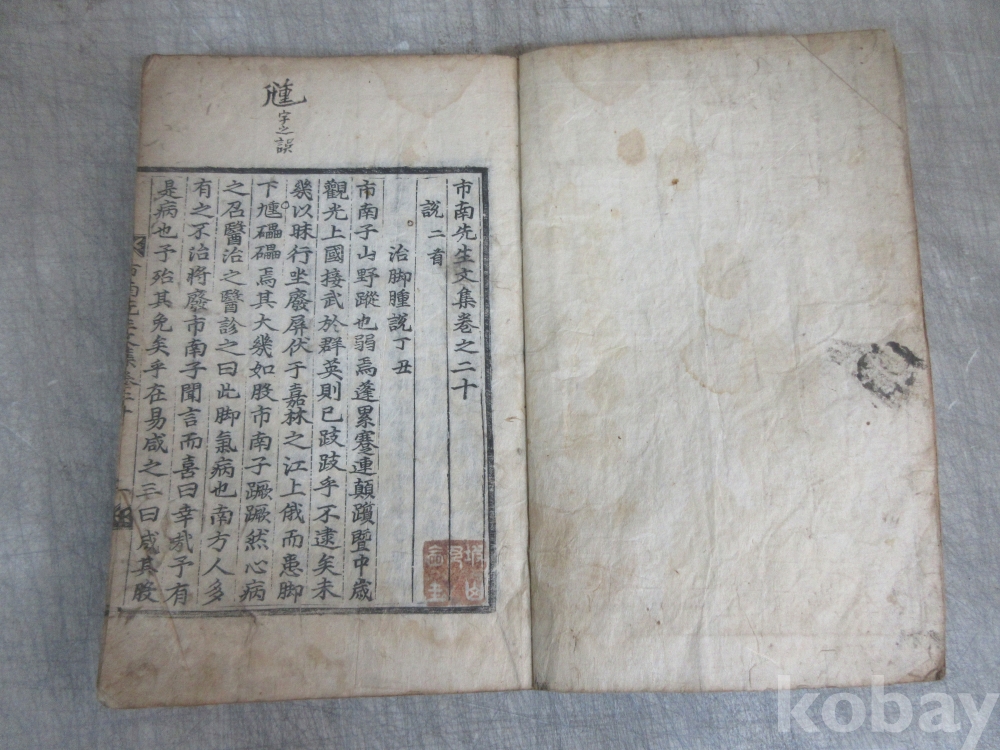 市南先生文集卷之二十
說二首
治脚腫說丁丑
市南子山野蹤也弱焉蓬累蹇連顛躓曁中歲
觀光上國接武於群英則已跂跂乎不逮矣未
幾以昧行坐廢屏伏于嘉林之江上俄而患脚
下尰礧礧焉其大幾如股市南子蹶蹶然心病
之召醫治之醫診之曰此脚氣病也南方人多
有之不治將廢市南子聞言而喜曰幸哉予有
是病也予殆其免矣乎在易咸之三曰咸其股
市南先生文集卷二十
字之誤
kobay